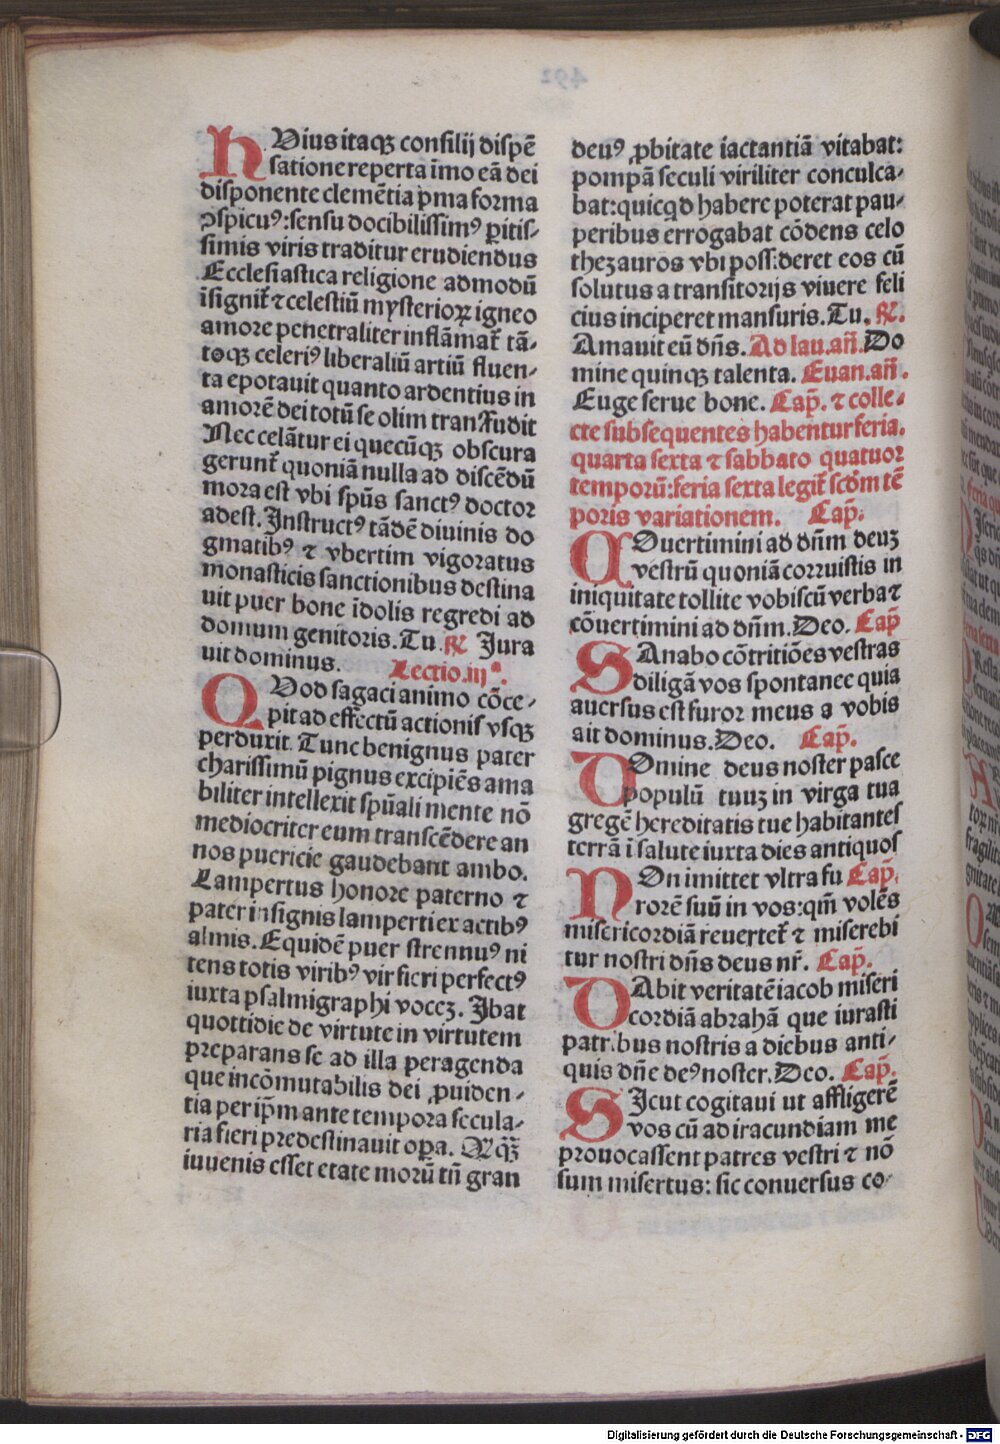 HVius itaqꝫ consilij dispē
satione reperta īmo eā dei
disponente clemētia p̄ma forma
ꝯspicuꝰ: sensu docibilissimꝰ ꝑitis-
simis viris traditur erudiendus
Ecclesiastica religione admodū
īsignit᷑ ⁊ celestiū mysterioꝝ igneo
amore penetraliter inflāmat᷑ tā-
toqꝫ celeriꝰ liberaliū artiū fluen-
ta epotauit quanto ardentius in
amorē dei totū se olim transfudit
Nec celātur ei quecūqꝫ obscura
gerunt᷑ quoniā nulla ad discēdū
mora est vbi sp̄us sanctꝰ doctor
adest. Instructꝰ tādē diuinis do
gmatibꝰ ⁊ vbertim vigoratus
monasticis sanctionibus destina
uit puer bone īdolis regredi ad
domum genitoris. Tu. ℟ Jura
uit dominus. Lectio.iijª.
QVod sagaci animo cōce-
pit ad effectū actionis vsqꝫ
perduxit. Tunc benignus pater
charissimū pignus excipiēs ama
biliter intellexit sp̄uali mente nō
mediocriter eum transcēdere an
nos puericie gaudebant ambo.
Lampertus honore paterno ⁊
pater insignis lamperti ex actibꝰ
almis. Equidē puer strennuꝰ ni
tens totis viribꝰ vir fieri perfectꝰ
iuxta psalmigraphi vocez. Ibat
quottidie de virtute in virtutem
preparans se ad illa peragenda
que incōmutabilis dei ꝓuiden-
tia per ip̄m ante tempora secula-
ria fieri predestinauit oꝑa. Nāqꝫ
iuuenis esset etate morū tn̄ gran
deuꝰ ꝓbitate iactantiā vitabat:
pompā seculi viriliter conculca-
bat: quicqd habere poterat pau-
peribus errogabat cōdens celo
thezauros vbi possideret eos cū
solutus a transitorijs viuere feli
cius inciperet mansuris. Tu. ℟.
Amauit eū dn̄s. Ad lau. añ. Do
mine quinqꝫ talenta. Euan. añ.
Euge serue bone. Cap̄. ⁊ colle-
cte subsequentes habentur feria.
quarta sexta ⁊ sabbato quatuor
temporū: feria sexta legit᷑ scd̄m tē
poris variationem. Cap̄.
COuertimini ad dn̄m deuȝ
vestrū quoniā corruistis in
iniquitate tollite vobiscū verba ⁊
cōuertimini ad dn̄m. Deo. Cap̄
SAnabo cōtritiōes vestras
diligā vos spontanee quia
auersus est furor meus a vobis
ait dominus. Deo. Cap̄.
DOmine deus noster pasce
populū tuuȝ in virga tua
gregē hereditatis tue habitantes
terrā ī salute iuxta dies antiquos
NOn imittet vltra fu Cap̄.
rorē suū in vos: qm̄ volēs
misericordiā reuertet᷑ ⁊ miserebi
tur nostri dn̄s deus nr̄. Cap̄.
DAbit veritatē iacob miseri
cordiā abrahā que iurasti
patribus nostris a diebus anti-
quis dn̄e deꝰ noster. Deo. Cap̄.
SIcut cogitaui ut affligerē
vos cū ad iracundiam me
prouocassent patres vestri ⁊ nō
sum misertus: sic conuersus co-
Digitalisierung gefördert durch die Deutsche Forschungsgemeinschaft - DFG